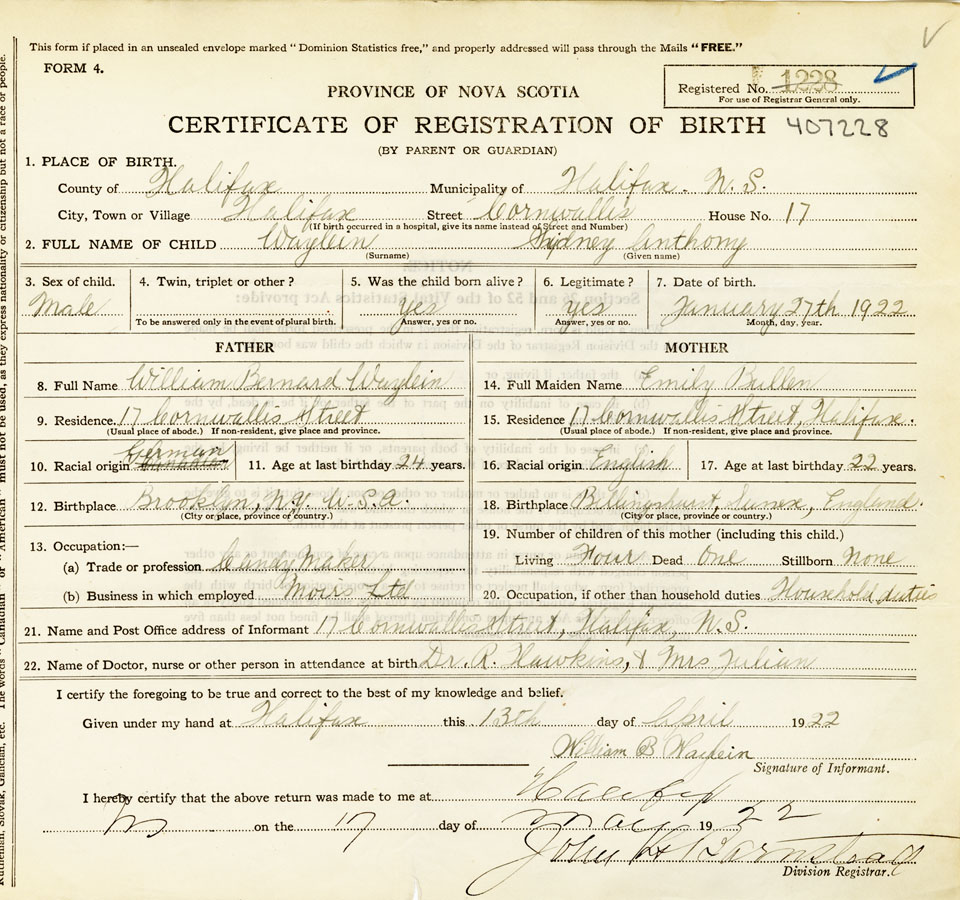 This form if placed in an unsealed envelope marked "Dominion Statistics free," and properly addressed will pass through the Mails "FREE."
FORM 4.
Registered No. 1228
For use of Registrar General only.
PROVINCE OF NOVA SCOTIA
CERTIFICATE OF REGISTRATION OF BIRTH 407228
(BY PARENT OR GUARDIAN)
1. PLACE OF BIRTH.
County of Halifax Municipality of Halifax. N. S.
City, Town or Village Halifax Street Cornwallis House No. 17
(If birth occurred in a hospital, give its name instead of Street and Number)
2. FULL NAME OF CHILD Waylein Sydney Anthony
(Surname) (Given name)
3. Sex of child. 4. Twin, triplet or other? 5. Was the child born alive? 6. Legitimate? 7. Date of birth.
Male Yes Yes January 27th 1922
To be answered only in the event of plural birth. Answer, yes or no. Answer, yes or no. Month, day, year.
FATHER MOTHER
8. Full Name William Bernard Waylein 14. Full Maiden Name Emily Bullen
9. Residence 17 Cornwallis Street 15. Residence 17 Cornwallis Street, Halifax.
(Usual place of abode.) If non-resident, give place and province. (Usual place of abode.) If non-resident, give place and province.
10. Racial origin German Canadian 11. Age at last birthday 24 years. 16. Racial origin English 17. Age at last birthday 22 years.
12. Birthplace Brooklyn, N.Y. U.S.A. 18. Birthplace Billingshurst, Sussex, England.
(City or place, province or country.) (City or place, province or country.)
13. Occupation:— 19. Number of children of this mother (including this child.)
(a) Trade or profession Candy Maker Living Four Dead One Stillborn None
(b) Business in which employed Moirs Ltd 20. Occupation, if other than household duties Household duties
21. Name and Post Office address of Informant 17 Cornwallis Street, Halifax, N.S.
22. Name of Doctor, nurse or other person in attendance at birth Dr. R. Hawkins, & Mrs Julian
I certify the foregoing to be true and correct to the best of my knowledge and belief.
Given under my hand at Halifax this 13th day of April 1922
William B Waylein
Signature of Informant.
I hereby certify that the above return was made to me at Halifax
NS on the 17 day of May 1922
John H Barnstead
Division Registrar.
Ruthenian, Slovak, Galician, etc. The words "Canadian" or "American" must not be used, as they express nationality or citizenship but not a race or people.